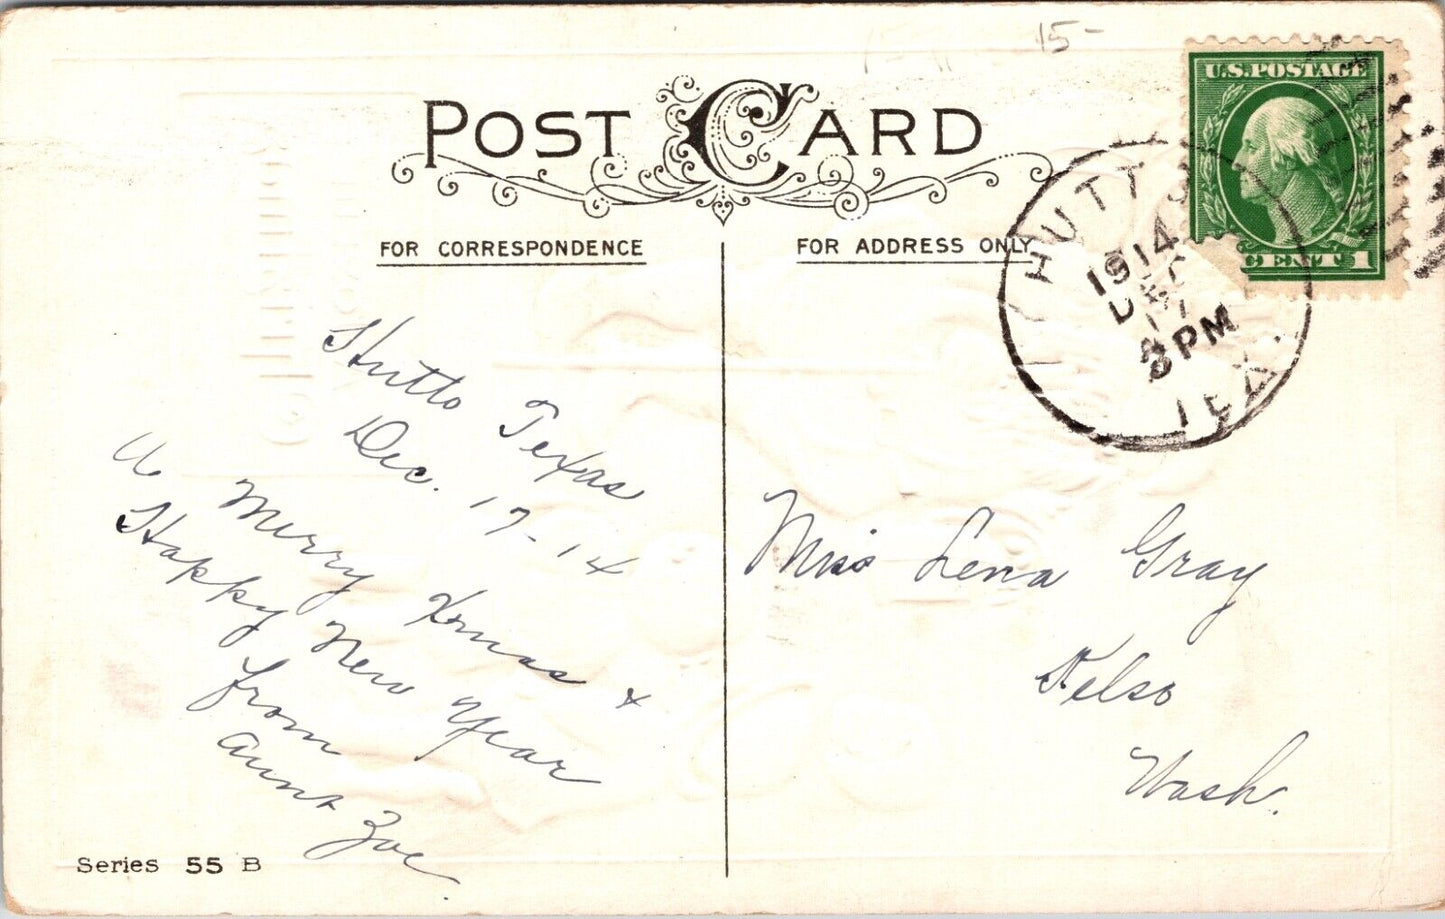 15-
POST CARD
U.S.POSTAGE
CENT 1
HUTTO
1914
DEC
17
PM
TEX.
FOR CORRESPONDENCE
FOR ADDRESS ONLY
Hutto Texas
Dec. 17-14
A Merry Xmas &
Happy New Year
from
Aunt Zoe
Miss Lena Gray
Kelso
Wash.
Series 55 B